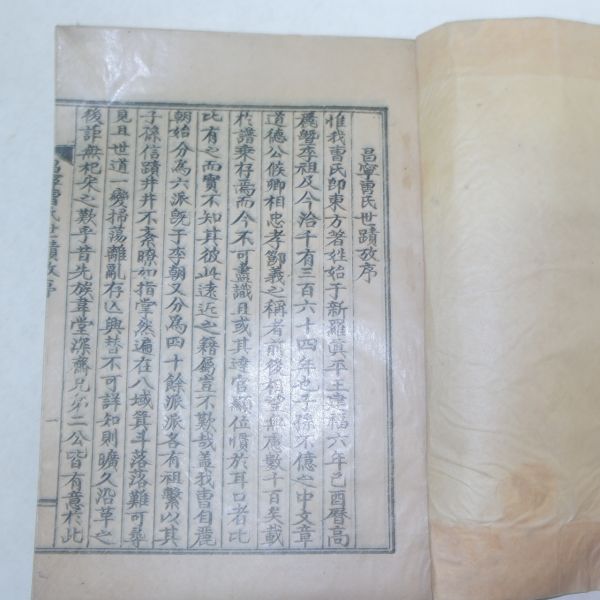 昌寧曺氏世蹟攷序
惟我曺氏卽東方著姓始于新羅眞平王建福六年己酉曆高
麗曁李祖及今治千有三百六十四年也子孫不億之中文章
道德公侯卿相忠孝節義之稱者前後相望無慮數千百矣載
於譜乘存焉而今不可盡識且或其達官顯位慣於耳口者比
比有之而實不知其彼此遠近之籍屬豈不歎哉盖我曺自麗
朝始分爲六派旣于李朝又分爲四十餘派派各有祖繫以其
子孫信蹟井井不紊瞭如指掌然遍在八域箕斗落落難可尋
見且世道一變掃蕩離亂存亡興替不可詳知則曠久沿革之
後詎無杞宋之歎乎昔先族韋堂深齋兄弟二公皆有意於此
昌寧曺氏世蹟攷序
一